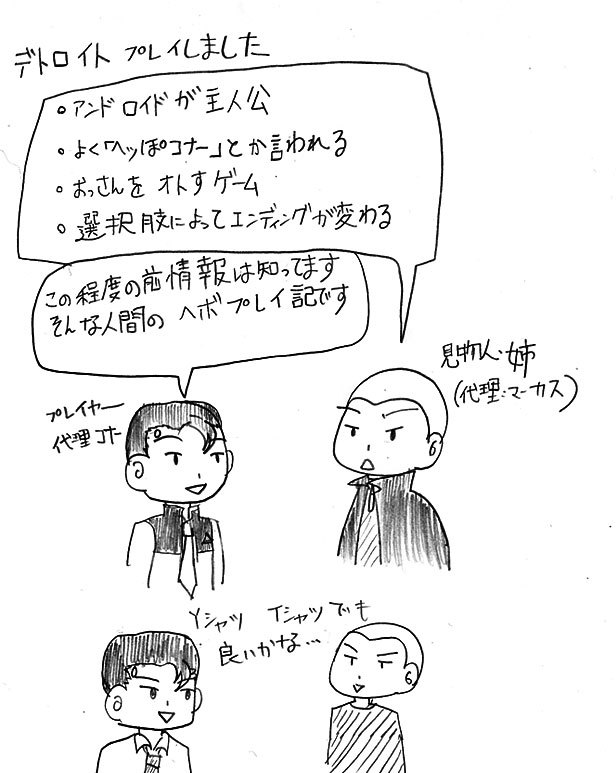 デトロイト プレイしました
・アンドロイドが主人公
・よく「ヘッぽコナー」とか言われる
・おっさんを オトすゲーム
・選択肢によってエンディングが変わる
この程度の前情報は知ってます
そんな人間の ヘボプレイ記です
見物人:姉
(代理:マーカス)
プレイヤー
代理コナー
Yシャツ Tシャツでも
良いかな…